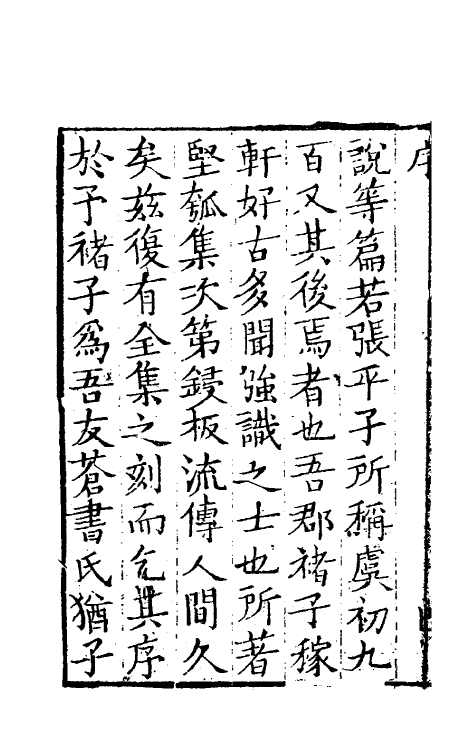 序
說等篇若張平子所稱虞初九
百又其後焉者也吾郡褚子稼
軒好古多聞強識之士也所著
堅瓠集次第鋟板流傳人間久
矣茲復有全集之刻而乞其序
於予褚子為吾友蒼書氏猶子